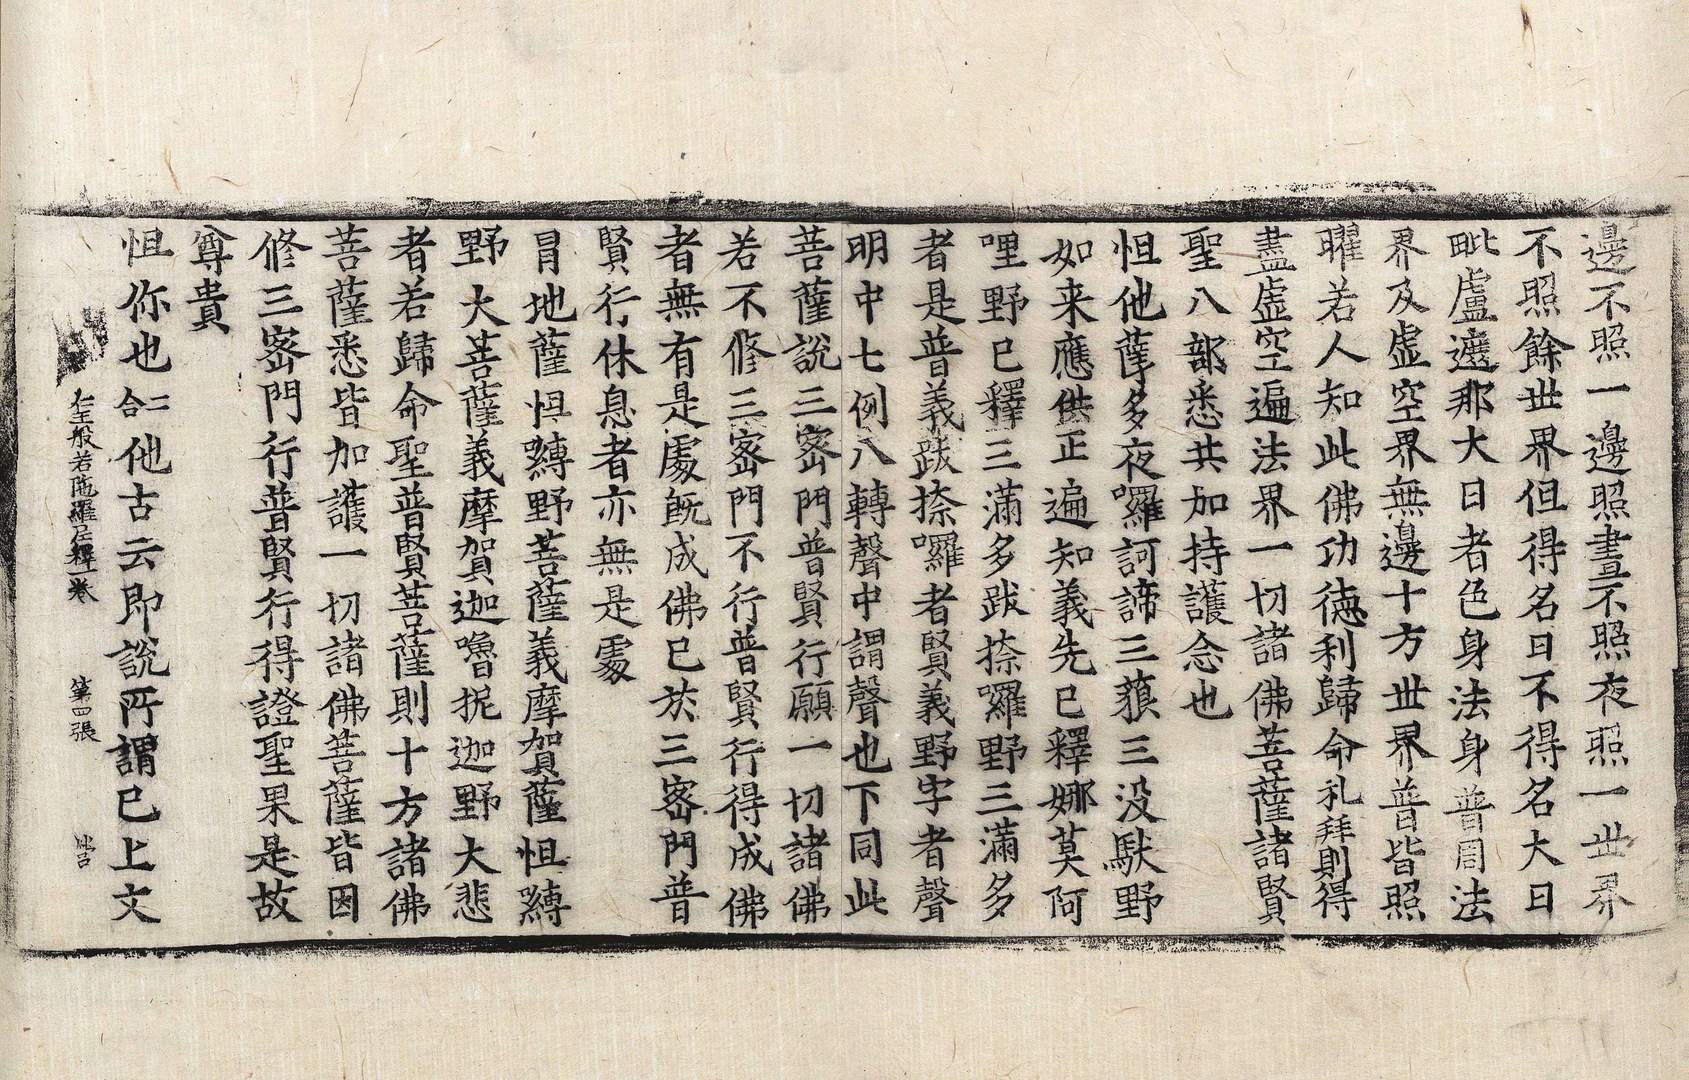 邊不照一邊照晝不照夜照一世界
不照餘世界但得名日不得名大日
毗盧遮那大日者色身法身普周法
界及虛空界無邊十方世界普皆照
曜若人知此佛功德利歸命礼拜則得
盡虛空遍法界一切諸佛菩薩諸賢
聖八部悉共加持護念也
怛他蘖多夜囉訶諦三藐三没馱野
如来應供正遍知義先已釋娜莫阿
哩野已釋三滿多跋捺囉野三滿多
者是普義跋捺囉者賢義野字者聲
明中七例八轉聲中謂聲也下同此
菩薩說三密門普賢行願一切諸佛
若不修三密門不行普賢行得成佛
者無有是處旣成佛已於三密門普
賢行休息者亦無是處
冐地薩怛嚩野菩薩義摩賀薩怛嚩
野大菩薩義摩賀迦嚕抳迦野大悲
者若歸命聖普賢菩薩則十方諸佛
菩薩悉皆加護一切諸佛菩薩皆因
修三密門行普賢行得證聖果是故
尊貴
怛你也二合他古云即說所謂已上文
仁王般若陁羅尼釋一卷 第四張